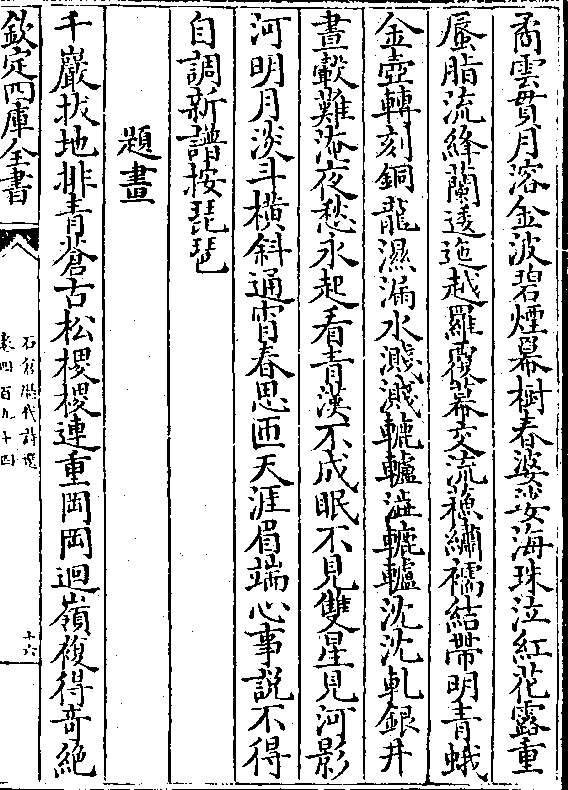 矞雲貫月溶金波碧煙幕樹春婆娑海珠泣紅花露重
蜃脂流絳蘭逶迤越羅覆幕交流蘓繡襦結帶明青蛾
金壺轉刻銅龍濕漏水濺濺轆轤澁轆轤沈沈軋銀井
晝轂難淹夜愁永起看青漢不成眠不見雙星見河影
河明月淡斗橫斜通宵春思匝天涯眉端心事説不得
自調新譜按琵琶
題畫
千巖拔地排青蒼古松稷稷連重岡岡迴嶺複得竒絶
欽定四庫全書
石倉歷代詩選
卷四百九十四
十六